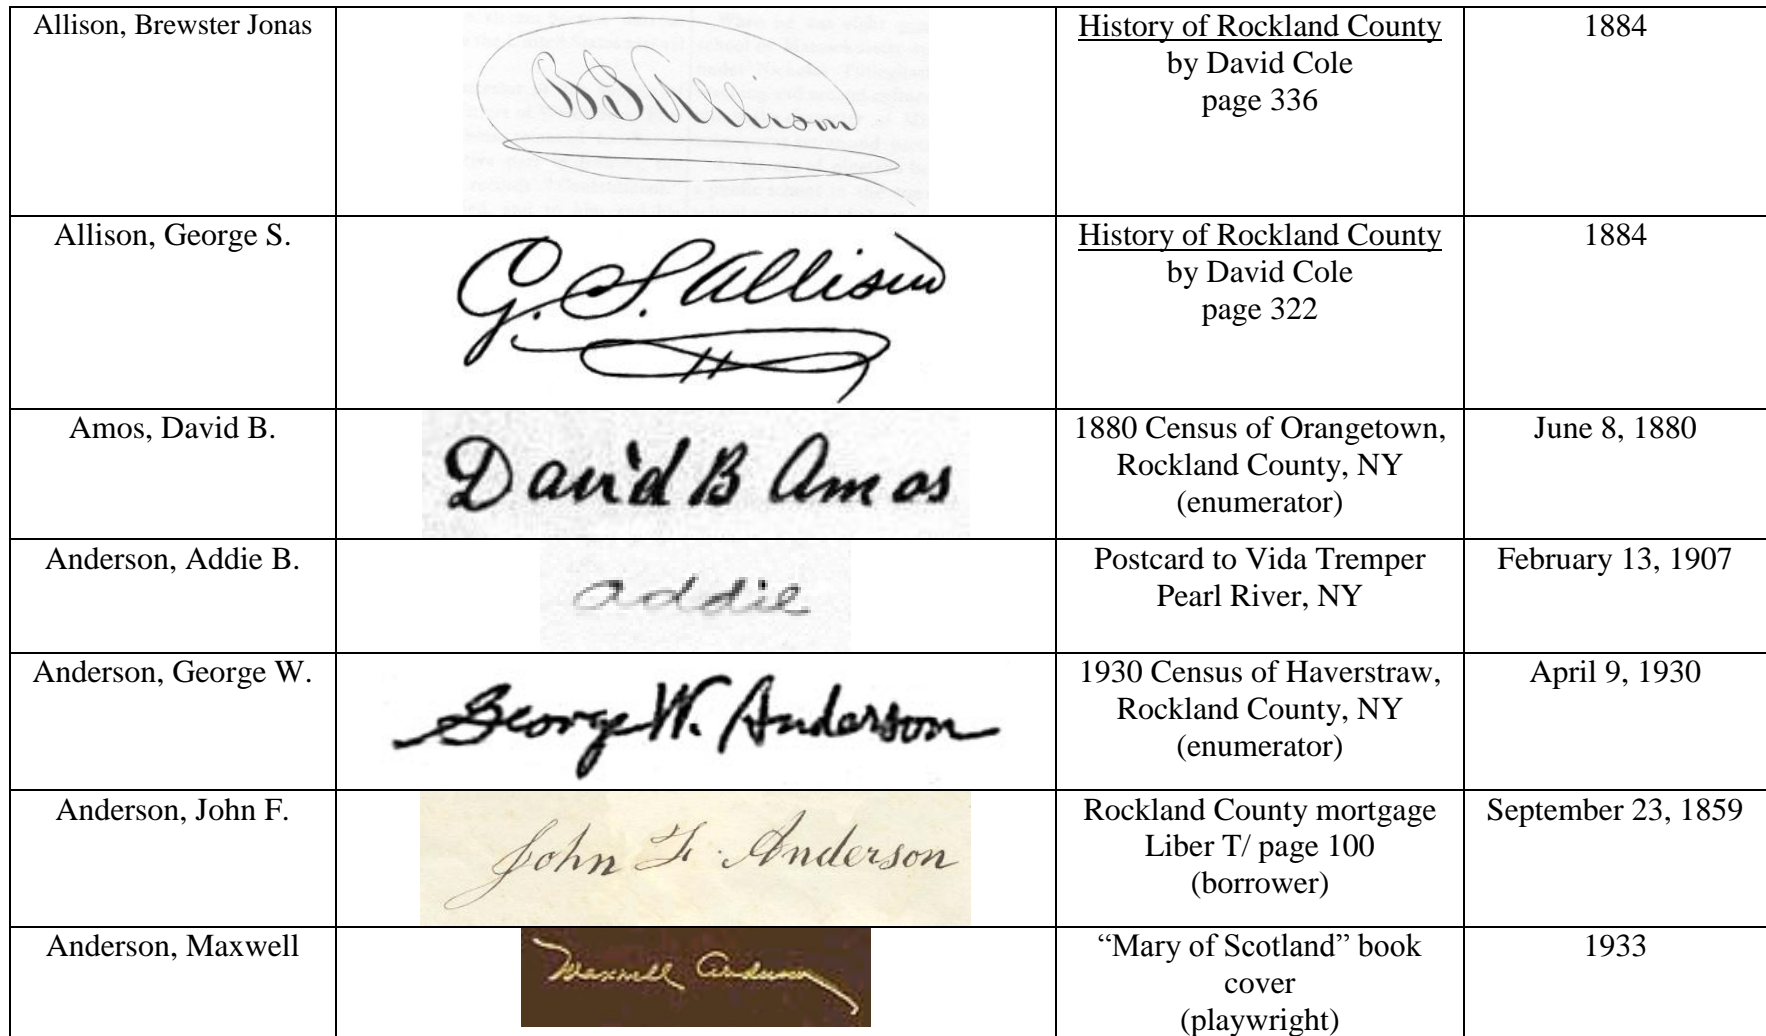 Allison, Brewster Jonas
BJ Allison
History of Rockland County
by David Cole
page 336
1884
Allison, George S.
G. S. Allison
History of Rockland County
by David Cole
page 322
1884
Amos, David B.
David B Amos
1880 Census of Orangetown,
Rockland County, NY
(enumerator)
June 8, 1880
Anderson, Addie B.
addie
Postcard to Vida Tremper
Pearl River, NY
February 13, 1907
Anderson, George W.
George W. Anderson
1930 Census of Haverstraw,
Rockland County, NY
(enumerator)
April 9, 1930
Anderson, John F.
John F. Anderson
Rockland County mortgage
Liber T/ page 100
(borrower)
September 23, 1859
Anderson, Maxwell
Maxwell Anderson
“Mary of Scotland” book
cover
(playwright)
1933